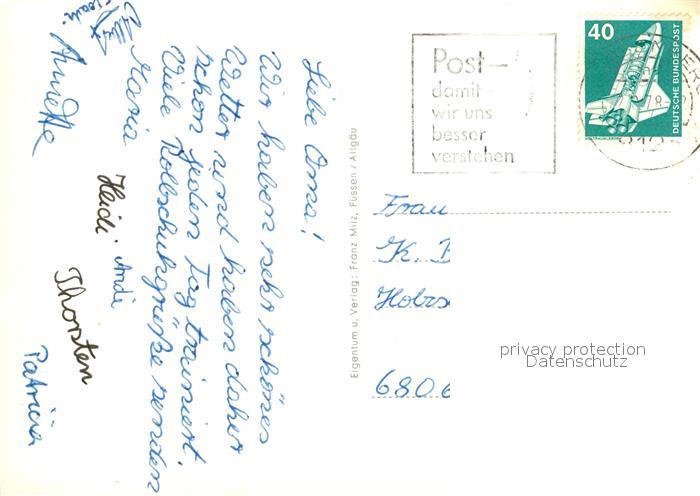 Liebe Oma!
Wir haben sehr schönes
Wetter und haben daher
schon jeden Tag trainiert.
Viele Rollschuhgrüße senden
Maria
Heidi Andi
Annette
Thorsten
Patricia
Eigentum u. Verlag: Franz Milz, Füssen / Allgäu
Post-
damit
wir uns
besser
verstehen
40
DEUTSCHE BUNDESPOST
Frau
K.
6806
privacy protection
Datenschutz